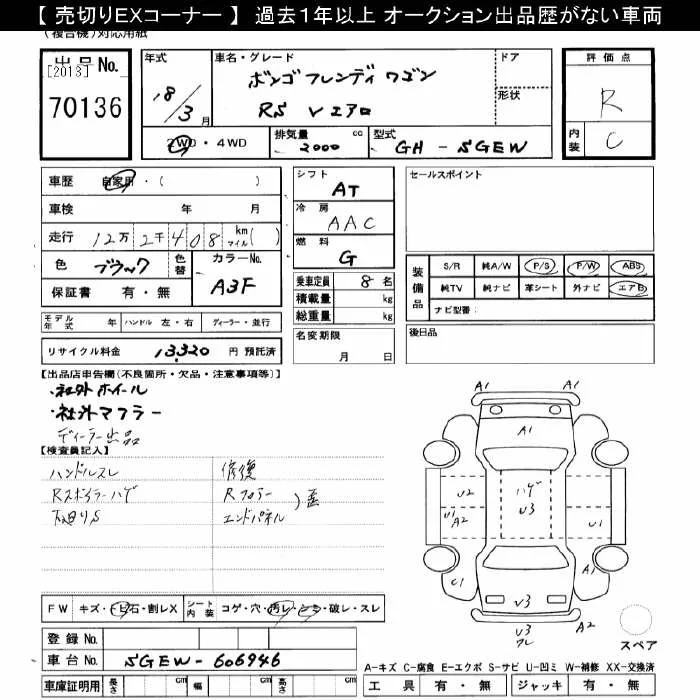 【 売切りEXコーナー 】 過去1年以上 オークション出品歴がない車両
(複合機)対応用紙
出品No. [2013]
70136
年式
18/3月
車名・グレード
ボンゴ フレンディ ワゴン
RS Vエアロ
ドア
形状
評価点
R
内装
C
2WD・4WD
排気量
2000 cc
型式
GH - SGEW
車歴 自家用・( )
車検 年 月
走行 12万 2千 408 km マイル( )
色 ブラック 色替
カラーNo.
A3F
保証書 有・無
シフト
AT
冷房
AAC
燃料
G
乗車定員 8 名
積載量 kg
総重量 kg
セールスポイント
装備品
S/R 純A/W P/S P/W ABS
純TV 純ナビ 革シート 外ナビ エアB
ナビ型番:
モデル年式 年 ハンドル 左・右 ディーラー・並行
リサイクル料金 13,320 円 預託済
名変期限
月 日
後日品
【出品店申告欄(不良箇所・欠品・注意事項等)】
・社外ホイール
・社外マフラー
ディーラー出品
【検査員記入】
ハンドルスレ
Rスポイラーハゲ
下廻りS
修復
Rフロアー
エンドパネル
歪
A1
A1
A1
U2
U1
A2
ハゲ
U3
U1
C1
A1
V3
U3
ワレ
スペア
FW キズ・トビ石・割レX
シート内装 コゲ・穴・汚レ・シミ・破レ・スレ
登録No.
車台No. SGEW-606946
車庫証明用 長さ cm 幅 cm 高さ cm
A-キズ C-腐食 E-エクボ S-サビ U-凹ミ W-補修 XX-交換済
工具 有・無 ジャッキ 有・無